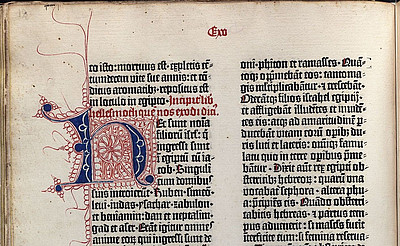 Exo
to isto: mortuus est. expletis cē-
tumdecem vite sue annis: et cō-
ditus aromatibꝫ. repositus est
in loculo in egipto. Incipit lib'
hellesmoth que nos exodū dici.
Ec sunt noīa
filiorū isrl' q̄
ingressi sunt
egiptū cū ia-
cob. Singuli
cum domibus
suis introierūt. Ruben. simeō.
leui. iudas. ysachar. zabulon
et beniamin. dan et neptalim.
gad et aser. Erāt igitur omnes
anime eoꝝ qui ingressi sunt de
oni. phiton et ramasses. Quā-
toqꝫ opprimebāt eos: tantoma-
gis multiplicabantur: et crescebāt.
Oderātqꝫ filios israhel egiptij:
et affligebāt illudētes et inuidē-
tes eis: atqꝫ ad amaritudinē per-
ducebāt vitam eoꝝ opibꝫ du-
ris luti et lateris: omniqꝫ famu-
latu quo in terre opibus pme-
bātur. Dixit autē rex egipti ob-
stetricibꝫ hebreoꝝ: quarū una
vocabat̄ sephora. altera phu-
a: precipiēs eis. Quādo obstetri-
cabitis hebreas. et partus tem-
pus aduenerit: si masculꝰ fueri-
t interficite eum: si femina reserua-